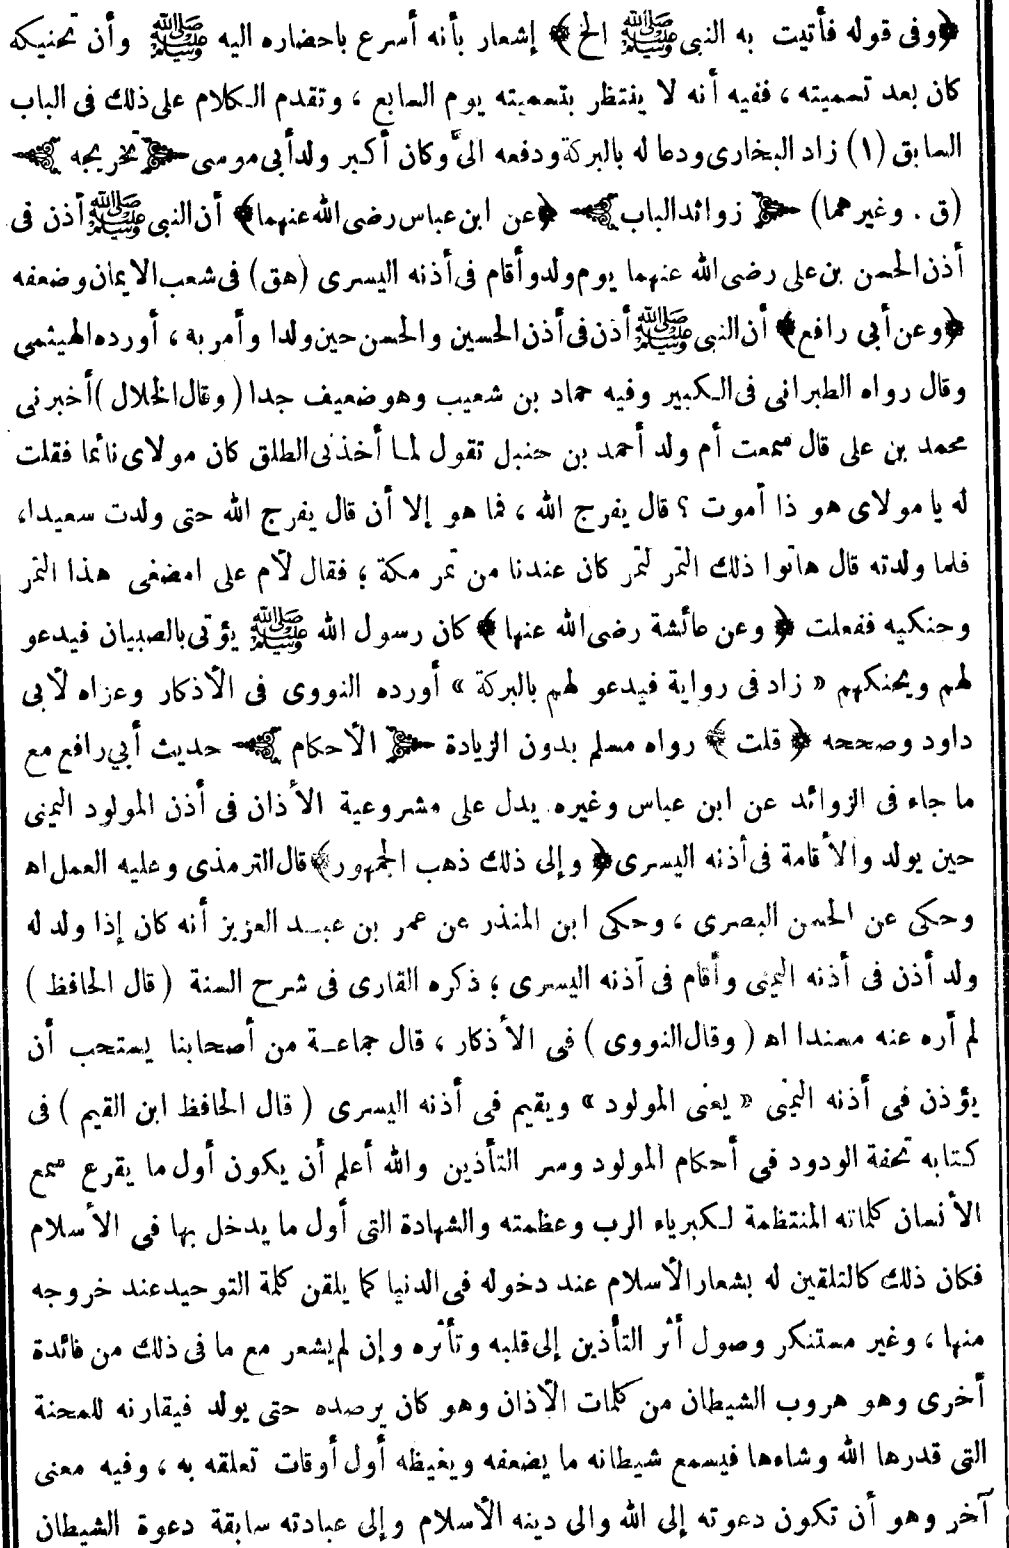 ﴿وفى قوله فأتيت به النبى ﷺ الخ﴾ إشعار بأنه أسرع باحضاره اليه ﷺ وأن تحنيكه
كان بعد تسميته ، ففيه أنه لا ينتظر بتسميته يوم السابع ، وتقدم الكلام على ذلك فى الباب
السابق (١) زاد البخارى ودعا له بالبركة ودفعه الىَّ وكان أكبر ولد أبى موسى ﴿تخريجه﴾
(ق . وغيرهما) ﴿زوائد الباب﴾ ﴿عن ابن عباس رضى الله عنهما﴾ أن النبى ﷺ أذن فى
أذن الحسن بن على رضى الله عنهما يوم ولد وأقام فى أذنه اليسرى (هق) فى شعب الايمان وضعفه
﴿وعن أبي رافع﴾ أن النبى ﷺ أذن فى أذن الحسين والحسن حين ولدا وأمر به ، أورده الهيثمي
وقال رواه الطبرانى فى الكبير وفيه حماد بن شعيب وهو ضعيف جدا (وقال الخلال) أخبرنى
محمد بن على قال سمعت أم ولد أحمد بن حنبل تقول لما أخذنى الطلق كان مولاى نائما فقلت
له يا مولاى هو ذا أموت ؟ قال يفرج الله ، فما هو إلا أن قال يفرج الله حتى ولدت سعيدا،
فلما ولدته قال هاتوا ذلك التمر لتمر كان عندنا من تمر مكة ؛ فقال لأم على امضغى هذا التمر
وحنكيه ففعلت ﴿وعن عائشة رضى الله عنها﴾ كان رسول الله ﷺ يؤتى بالصبيان فيدعو
لهم ويحنكهم « زاد فى رواية فيدعو لهم بالبركة » أورده النووى فى الأذكار وعزاه لأبى
داود وصححه ﴿قلت﴾ رواه مسلم بدون الزيادة ﴿الأحكام﴾ حديث أبي رافع مع
ما جاء فى الزوائد عن ابن عباس وغيره يدل على مشروعية الأذان فى أذن المولود اليمنى
حين يولد والأقامة فى أذنه اليسرى ﴿وإلى ذلك ذهب الجمهور﴾ قال الترمذى وعليه العمل اه
وحكى عن الحسن البصرى ، وحكى ابن المنذر عن عمر بن عبد العزيز أنه كان إذا ولد له
ولد أذن فى أذنه اليمنى وأقام فى أذنه اليسرى ؛ ذكره القارى فى شرح السنة (قال الحافظ)
لم أره عنه مسندا اه (وقال النووى) فى الأذكار ، قال جماعة من أصحابنا يستحب أن
يؤذن فى أذنه اليمنى « يعنى المولود » ويقيم فى أذنه اليسرى (قال الحافظ ابن القيم) فى
كتابه تحفة الودود فى أحكام المولود وسر التأذين والله أعلم أن يكون أول ما يقرع سمع
الأنسان كلماته المنتظمة لكبرياء الرب وعظمته والشهادة التى أول ما يدخل بها فى الأسلام
فكان ذلك كالتلقين له بشعار الأسلام عند دخوله فى الدنيا كما يلقن كلمة التوحيد عند خروجه
منها ، وغير مستنكر وصول أثر التأذين إلى قلبه وتأثره وإن لم يشعر مع ما فى ذلك من فائدة
أخرى وهو هروب الشيطان من كلمات الأذان وهو كان يرصده حتى يولد فيقارنه للمحنة
التى قدرها الله وشاءها فيسمع شيطانه ما يضعفه ويغيظه أول أوقات تعلقه به ، وفيه معنى
آخر وهو أن تكون دعوته إلى الله والى دينه الأسلام وإلى عبادته سابقة دعوة الشيطان